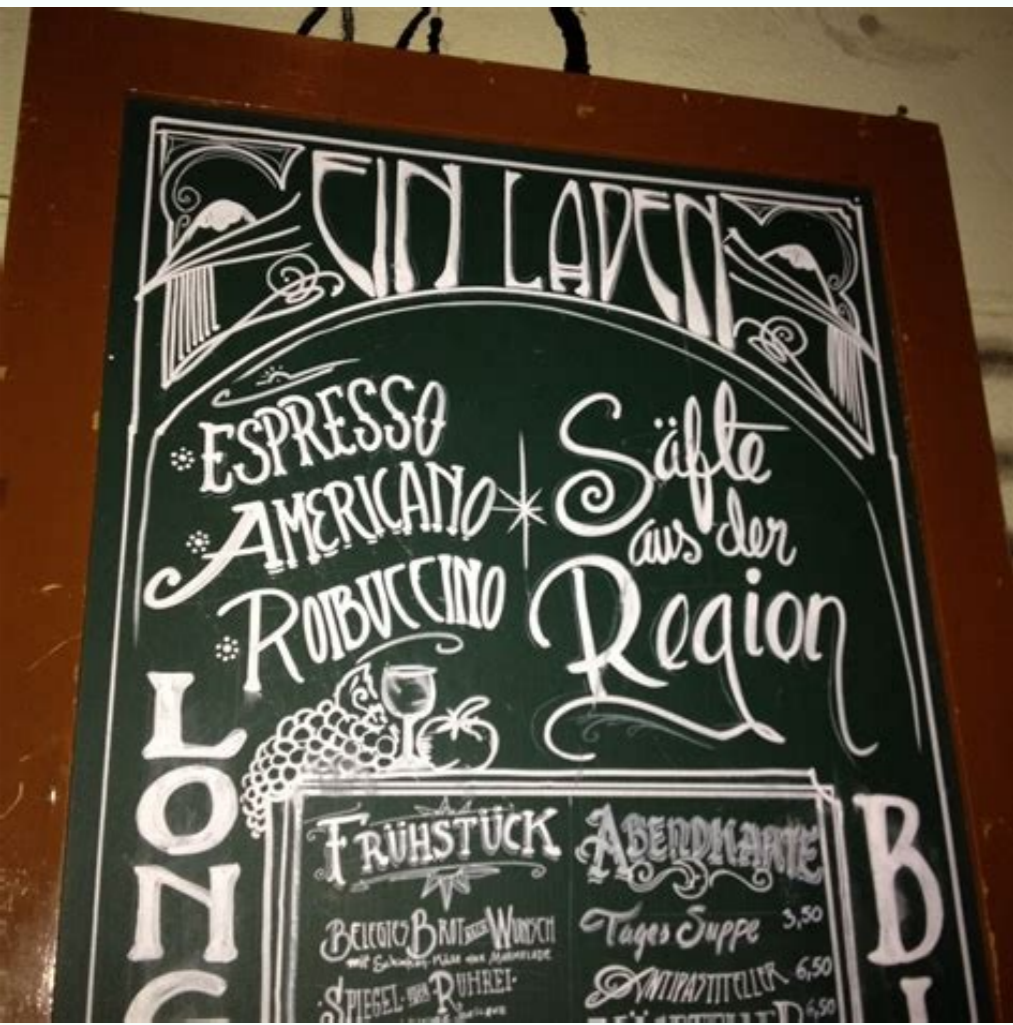 EIN LADEN
ESPRESSO
AMERICANO
ROIBUCCINO
Säfte
aus der
Region
LONG
FRÜHSTÜCK
BELEGTES BROT NACH WUNSCH
mit Schinken, Käse oder MARMELADE
SPIEGEL- ODER RÜHREI-
ABENDKARTE
Tages Suppe 3,50
ANTIPASTITELLER 6,50
6,50
B